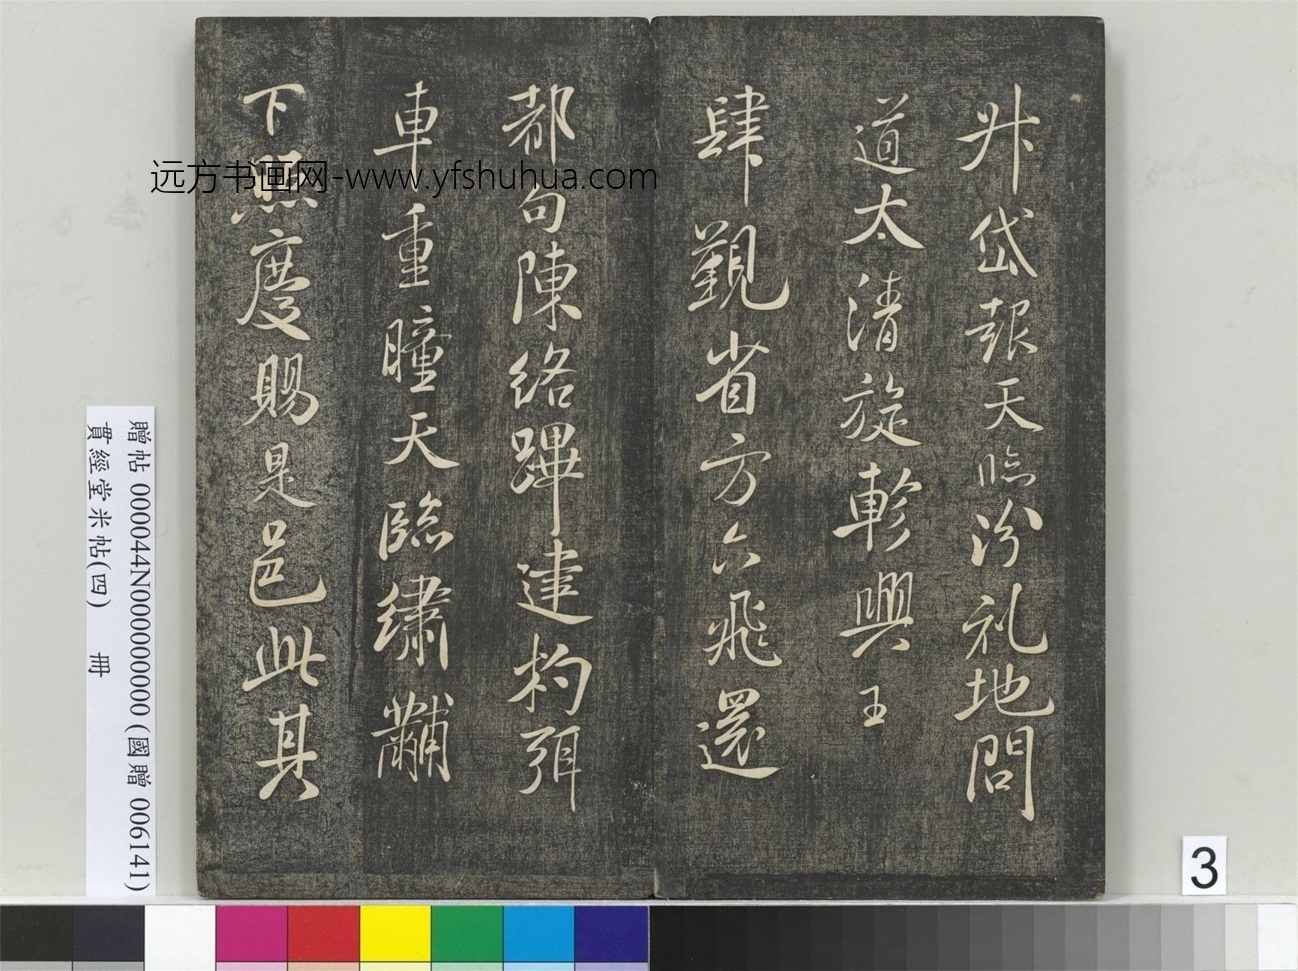 升岱報天臨汾礼地問
道太清旋軫興王
肆覲省方六飛還
都句陳絡蹕建杓弭
車重瞳天臨繡黼
下照慶賜是邑此其
远方书画网-www.yfshuhua.com
贈帖 000044N000000000 (國贈 006141)
貫經堂米帖(四) 冊
3